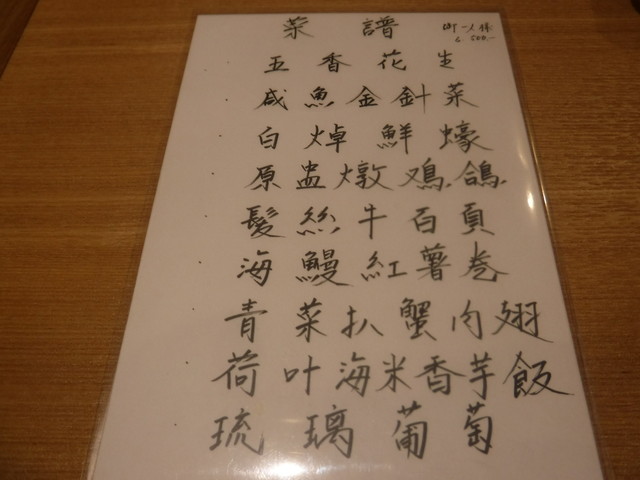 菜譜
御一人様
五香花生
咸魚金針菜
白焯鮮蠔
原盅燉鳮鴿
髪絲牛百頁
海鰻紅薯巻
青菜扒蟹肉翅
荷叶海米香芋飯
琉璃葡萄